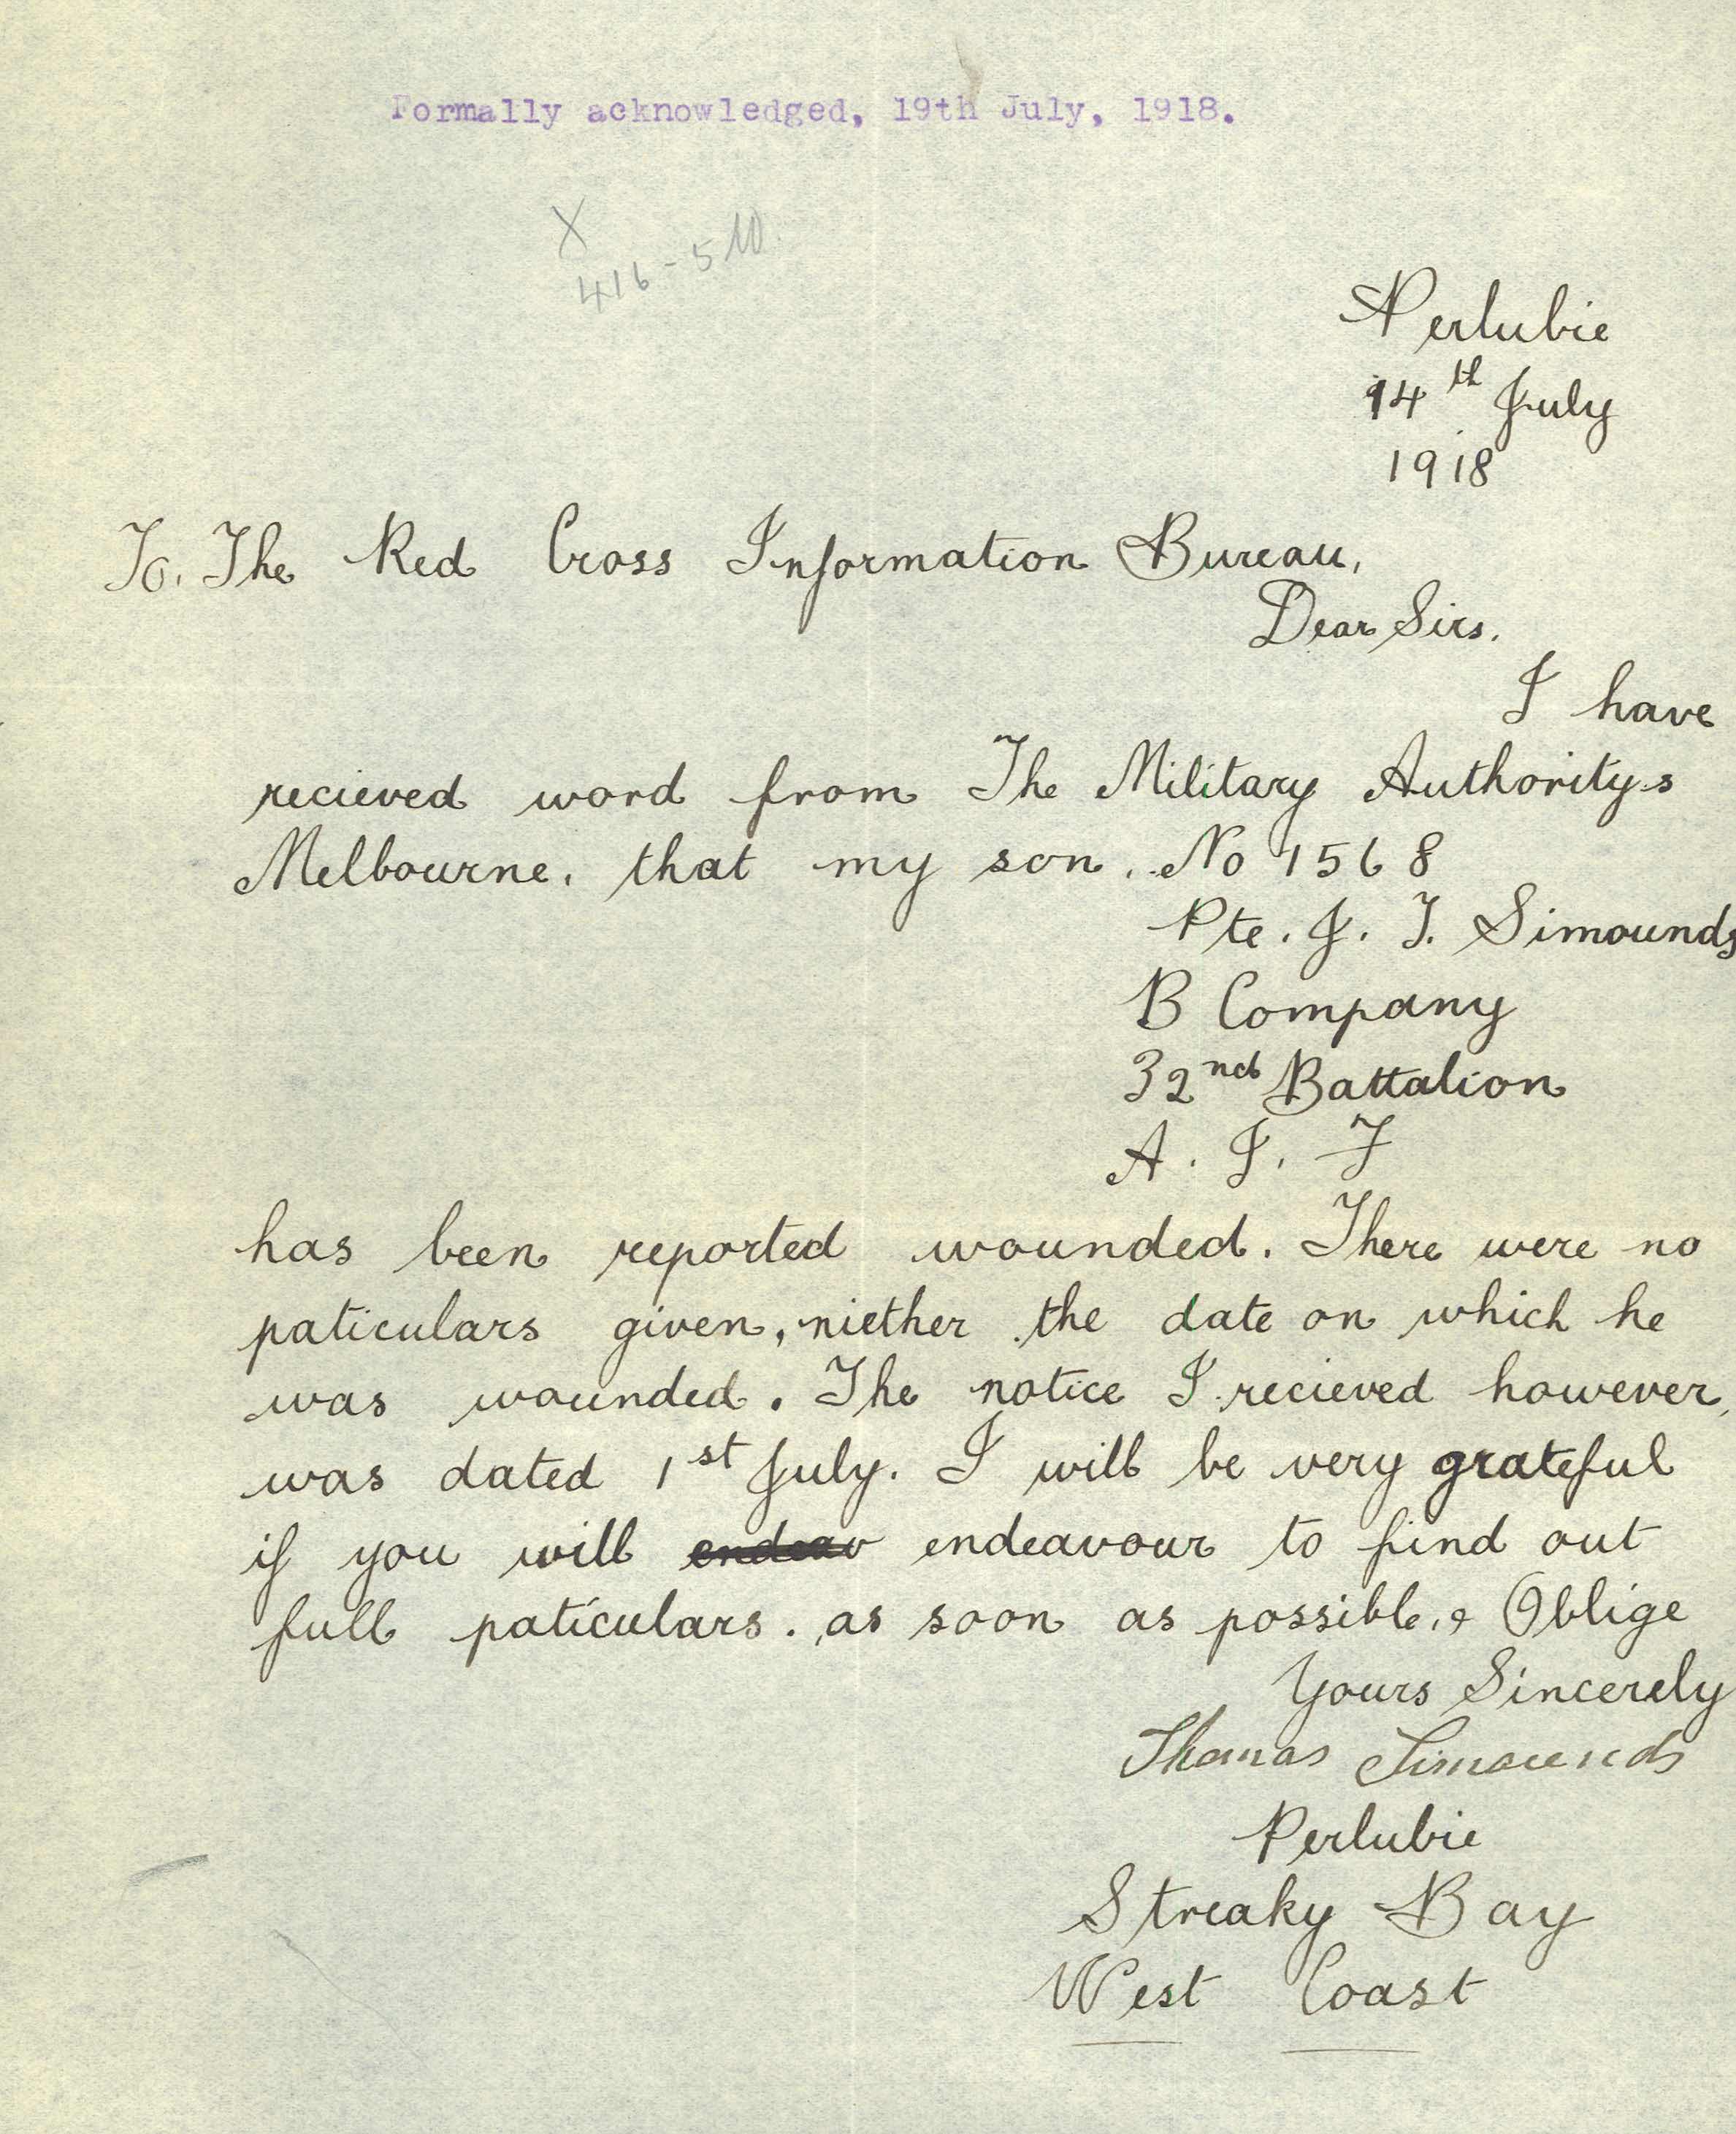 Formally acknowledged, 19th July, 1918.
X
416-5
Perlubie
14th July
1918
To. The Red Cross Information Bureau,
Dear Sirs.
I have
recieved word from The Military Authoritys
Melbourne. that my son. No 1568
Pte. J. T. Simounds
B Company
32nd Battalion
A. I. F
has been reported wounded. There were no
paticulars given, niether the date on which he
was wounded. The notice I recieved however,
was dated 1st July. I will be very grateful
if you will endeav endeavour to find out
full paticulars. as soon as possible, & Oblige
Yours Sincerely
Thomas Simounds
Perlubie
Streaky Bay
West Coast